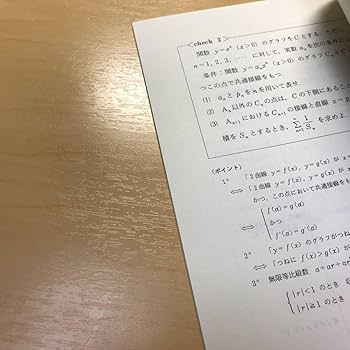 <check 2>
関数 y=eˣ (x>0) のグラフをCとする.
n=1, 2, 3, …… に対して, 実数 aₙ を次の条件
条件：関数 y=aₙxⁿ (x>0) のグラフCₙと
つこの点で共通接線をもつ.
(1) aₙ と pₙ をnを用いて表せ.
(2) Aₙ以外の Cₙの点は, Cの下側にあること
(3) Aₙ₊₁における Cₙ₊₁の接線と直線 x=
積を Sₙとするとき, Σ 1/Sₙ を求めよ.
(ポイント)
1° 「2曲線 y=f(x), y=g(x) が x=
⇔ 「2曲線 y=f(x), y=g(x)
かつ, この点において共通接線を
⇔ f(a)=g(a)
かつ
f′(a)=g′(a)
2° 「y=f(x) のグラフがつね
⇔ 「つねに f(x)>g(x) が
3° 無限等比級数 a+ar+ar
|r|<1 のとき
|r|≧1 のとき